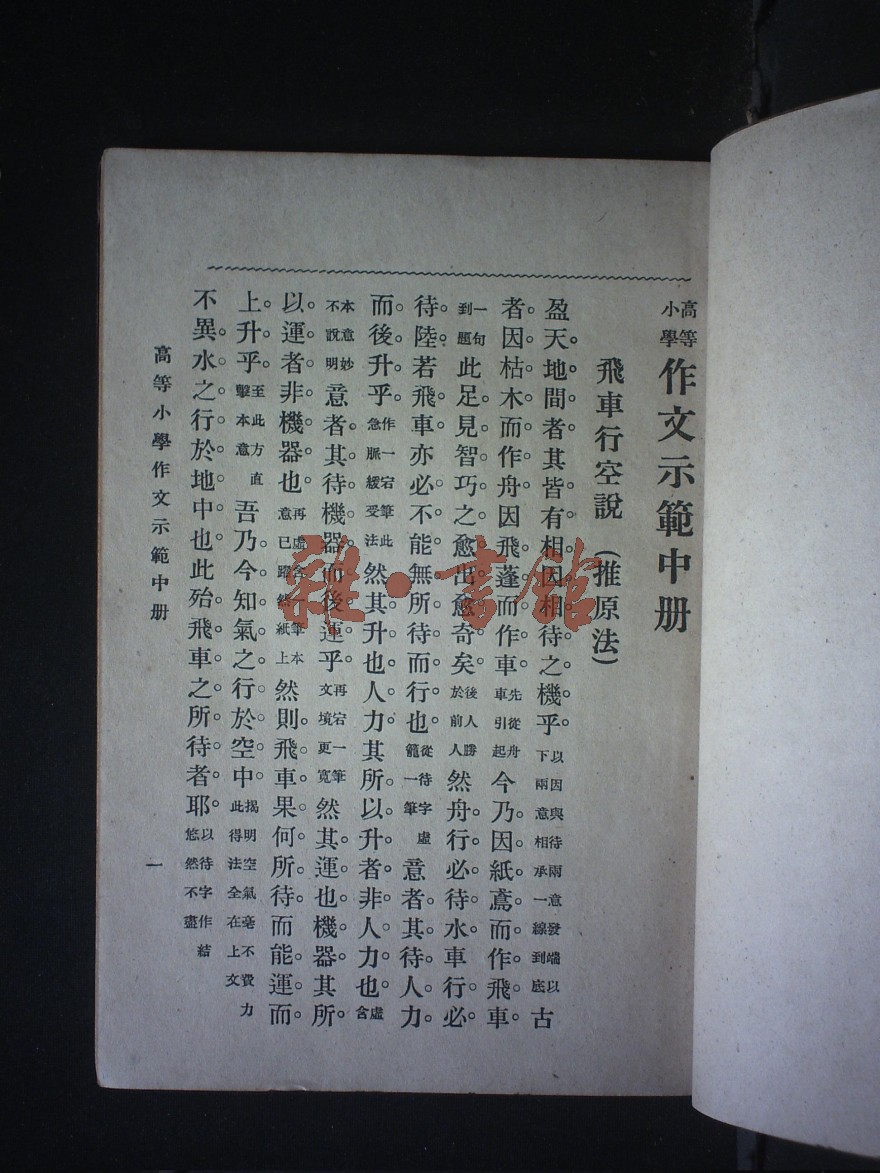 高等小學作文示範中册
飛車行空說（推原法）
盈天地間者其皆有相因相待之機乎。以因與待兩意發端以下兩意相承一線到底古
者。因枯木而作舟因飛蓬而作車。先從舟車引起今乃因紙鳶而作飛車。
一句到題此足見智巧之愈出愈奇矣。後人勝於前人然舟行必待水車行必
待陸。若飛車亦必不能無所待而行也。從待字虛籠一筆意者其待人力
而後升乎。作一宕筆此急脈緩受法然其升也人力其所以升者非人力也。虛含
本意妙不說明意者其待機器而後運乎。再宕一筆文境更寬然其運也機器其所
以運者非機器也。再虛含一筆本意已躍然紙上然則飛車果何所待而能運而
上升乎。至此方直擊本意吾乃今知氣之行於空中。揭明空氣毫不費力此得法全在上文
不異水之行於地中也此殆飛車之所待者耶。以待字作結悠然不盡
高等小學作文示範中册 一
雜·書館